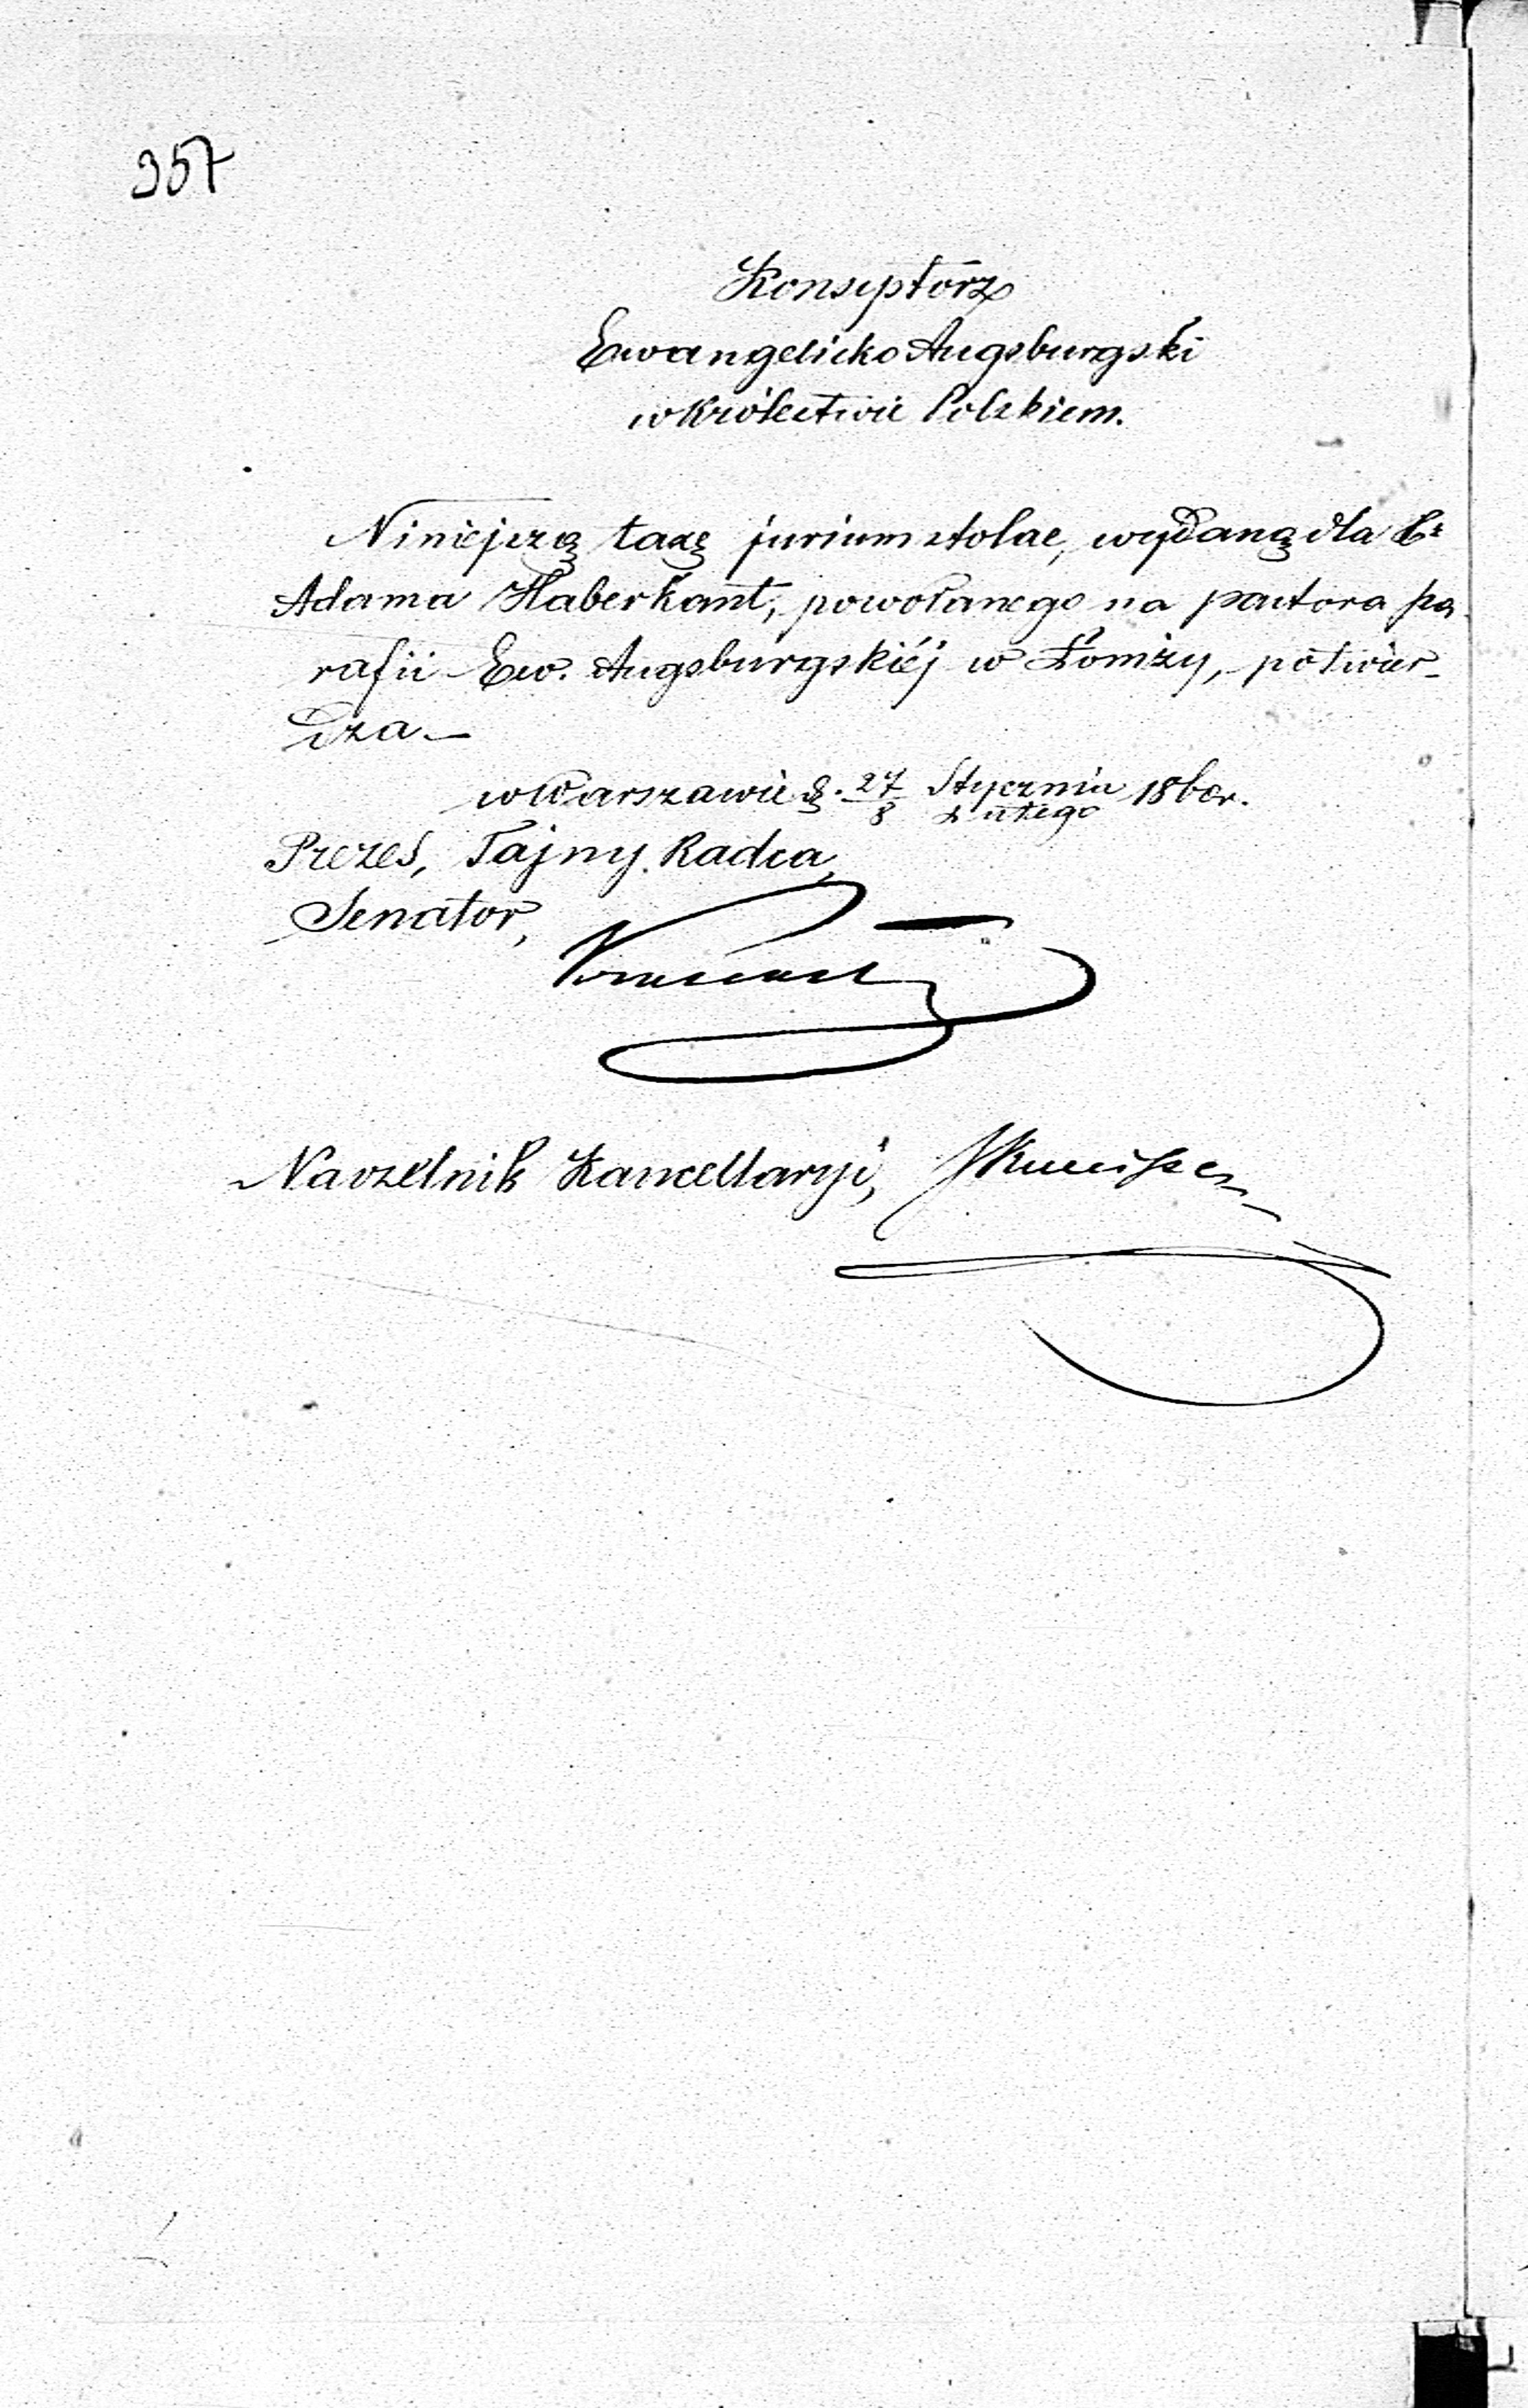 357
Konsystórz
Ewangelicko Augsburgski
w Królestwie Polskiem.
Niniejszą taxę jurium stolae, wydaną dla
Adama Haberkant, powołanego na pastora pa-
rafii Ew. Augsburgskiéj w Łomży, potwier-
dza —
w Warszawie d. 27/8 Stycznia/Lutego 186 r.
Prezes, Tajny Radca,
Senator,
Naczelnik Kancellaryi,